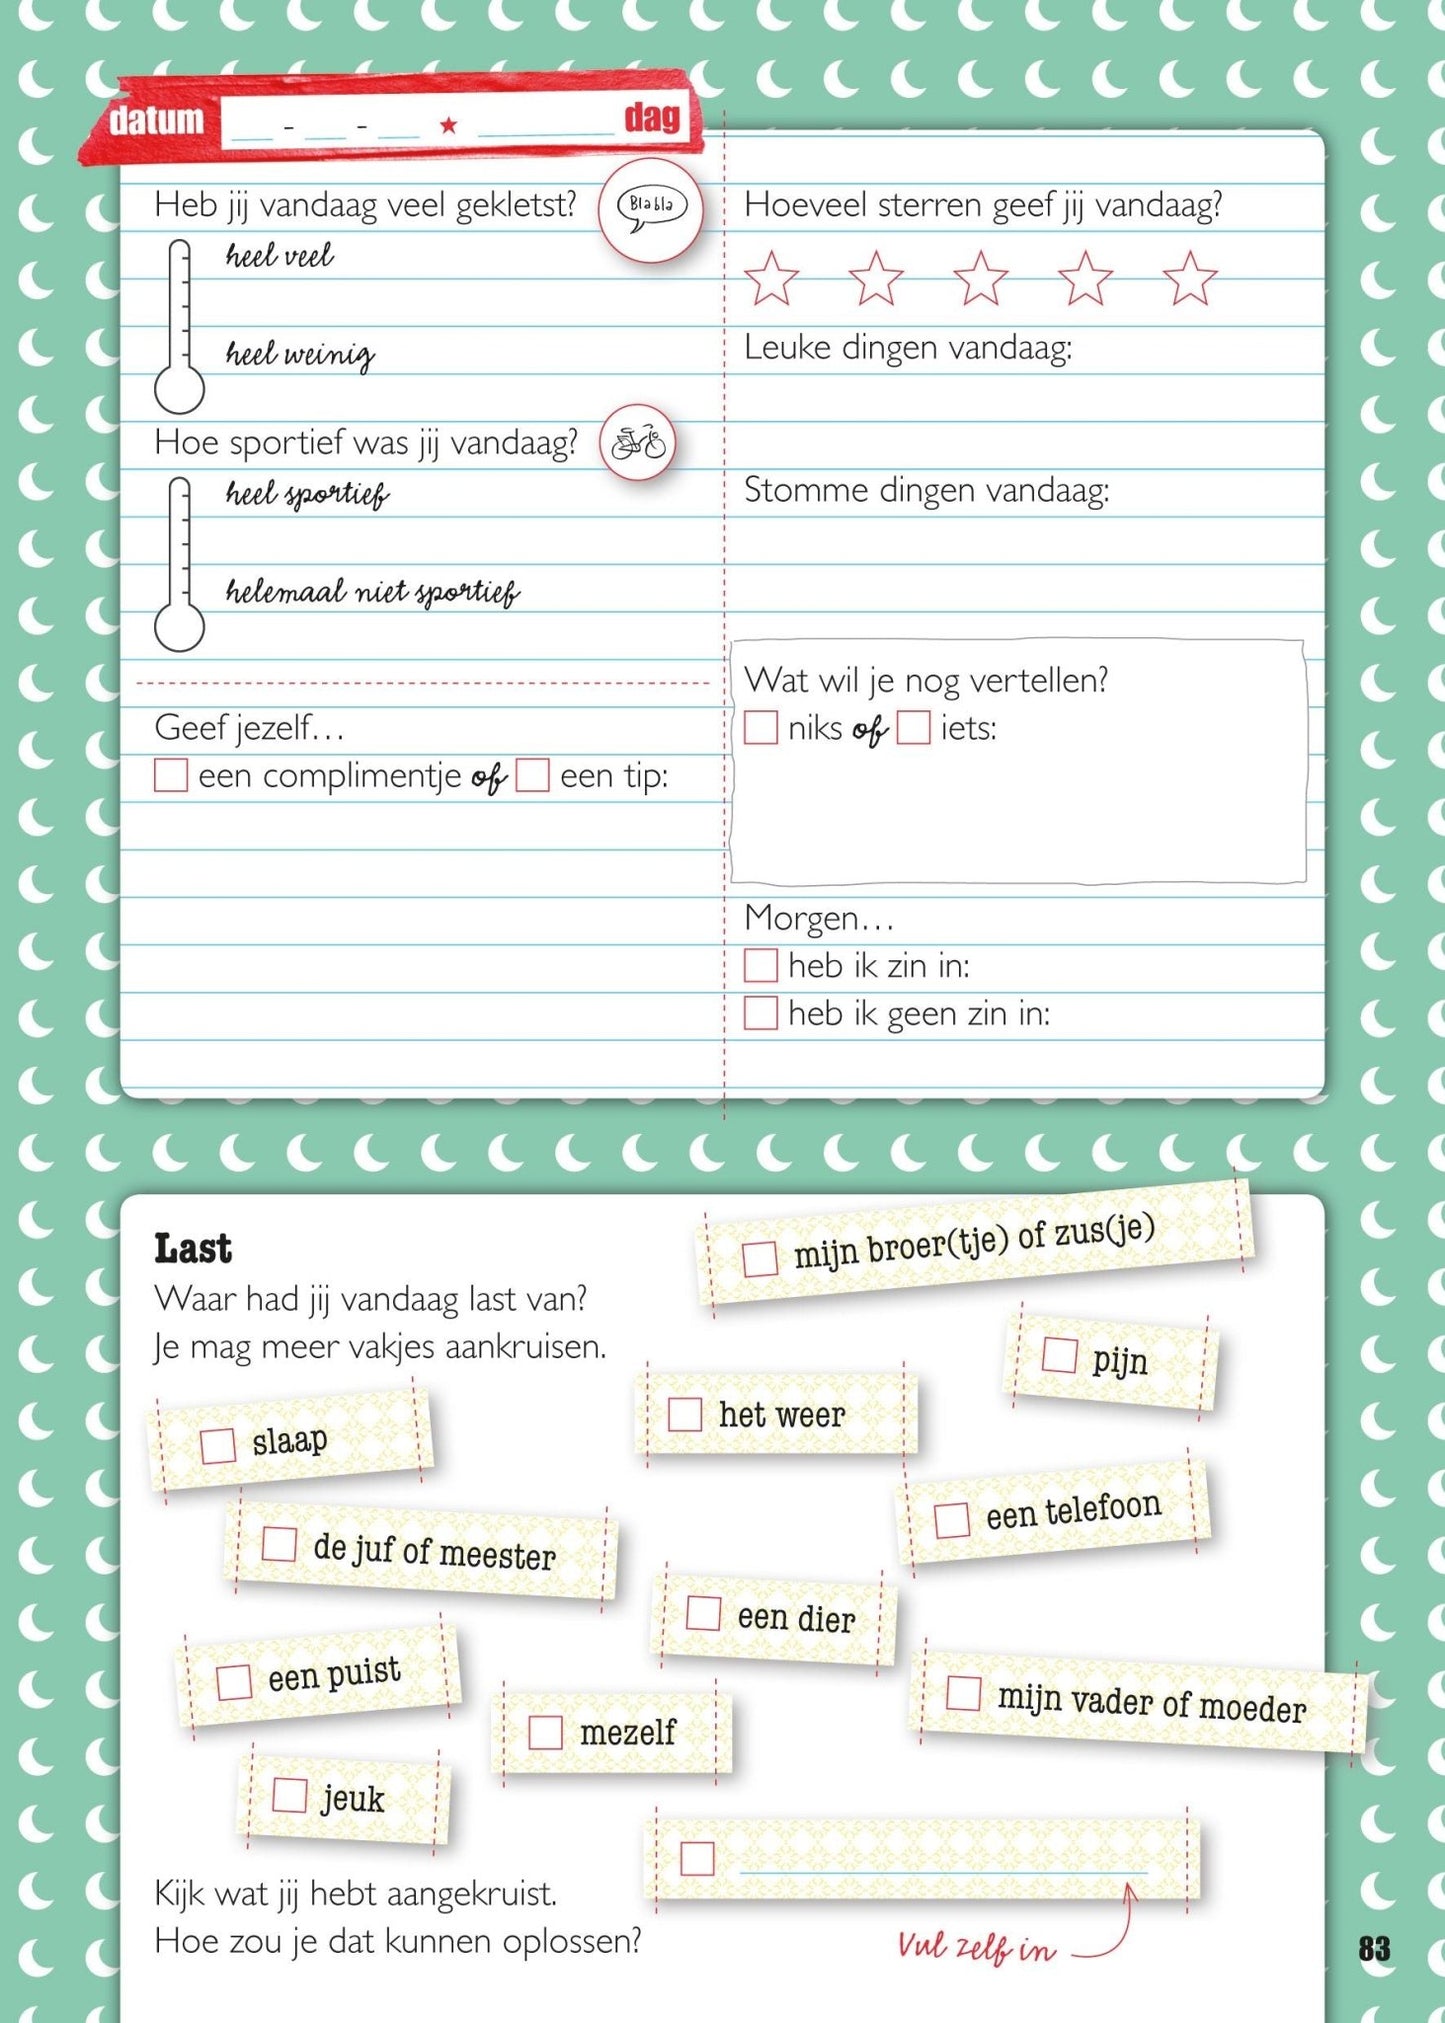 datum - - ★ dag
Heb jij vandaag veel gekletst?
Bla bla
heel veel
heel weinig
Hoe sportief was jij vandaag?
heel sportief
helemaal niet sportief
Geef jezelf...
een complimentje of een tip:
Hoeveel sterren geef jij vandaag?
Leuke dingen vandaag:
Stomme dingen vandaag:
Wat wil je nog vertellen?
niks of iets:
Morgen...
heb ik zin in:
heb ik geen zin in:
Last
Waar had jij vandaag last van?
Je mag meer vakjes aankruisen.
mijn broer(tje) of zus(je)
pijn
het weer
slaap
een telefoon
de juf of meester
een dier
een puist
mijn vader of moeder
mezelf
jeuk
Kijk wat jij hebt aangekruist.
Hoe zou je dat kunnen oplossen?
Vul zelf in
83